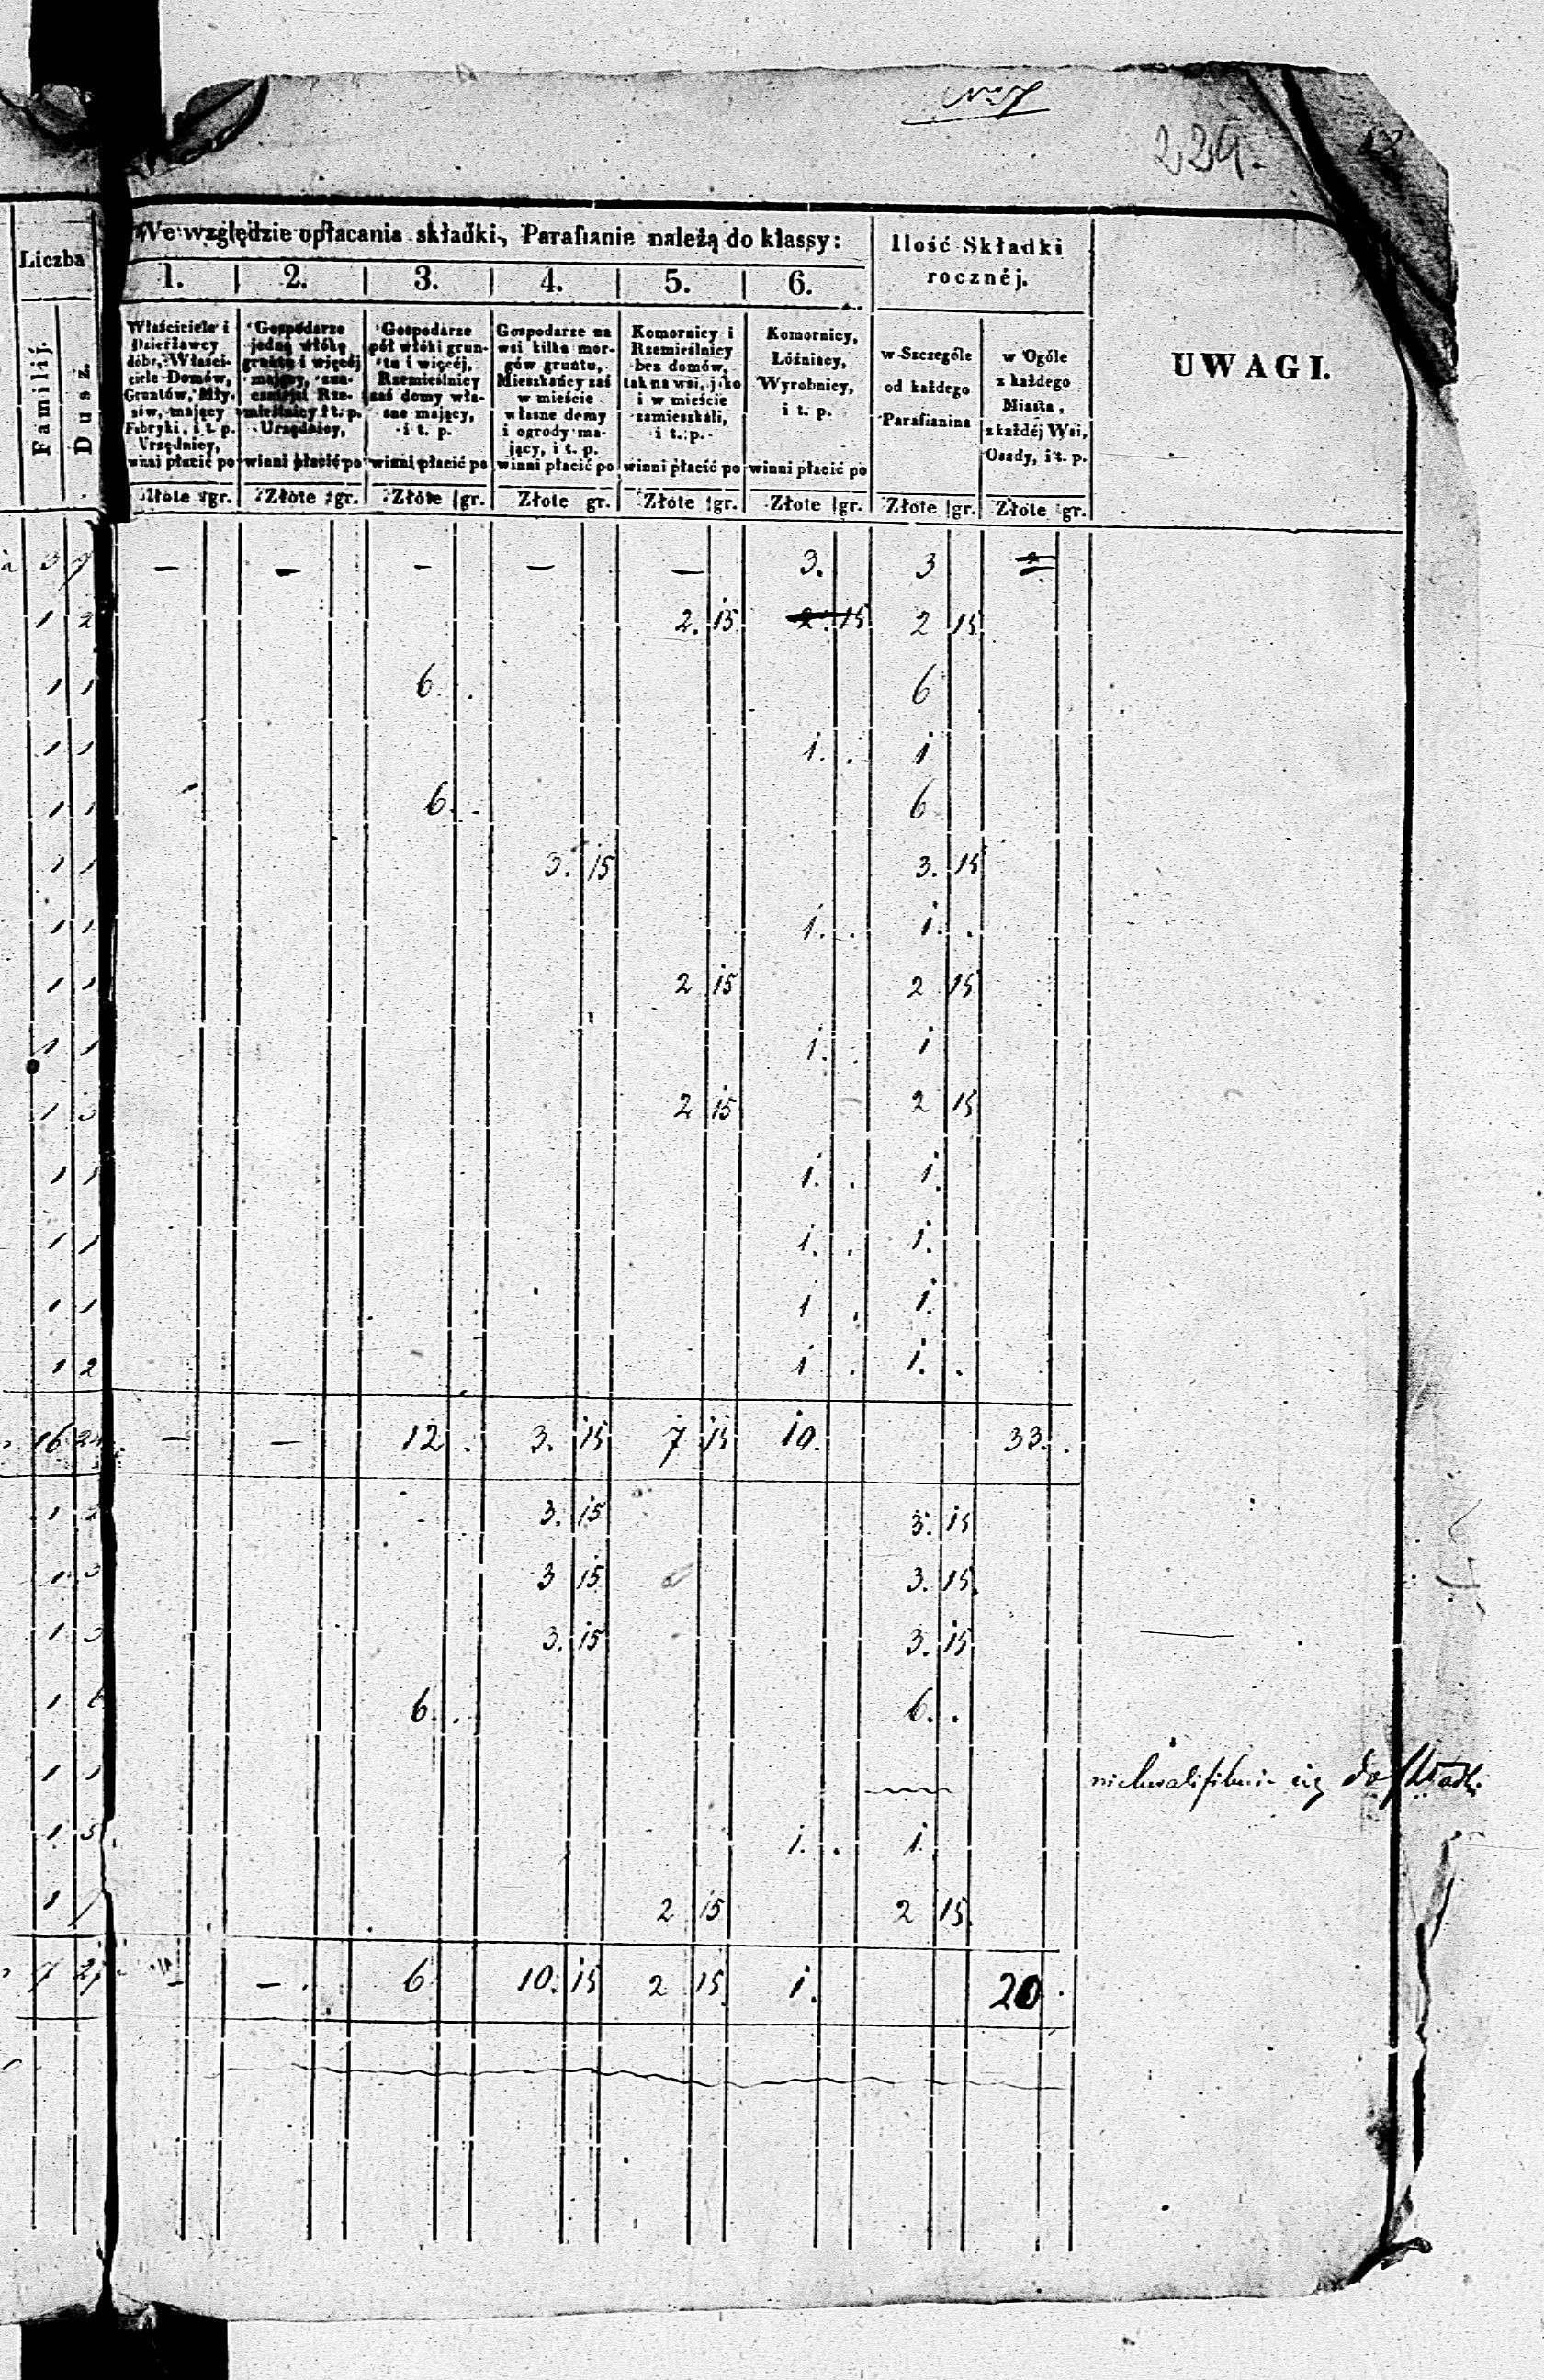 224.
We względzie opłacania składki, Parafianie należą do klassy:
Ilość Składki rocznéj.
UWAGI.
Liczba
Familij.
Dusz.
1. 2. 3. 4. 5. 6.
Właściciele i
Dzierżawcy
dóbr, Właści-
ciele Domów,
Gruntów, Mły-
nów, mający
Fabryki, i t. p.
Urzędnicy,
winni płacić po
Gospodarze
jedną włókę
gruntu i więcéj
mający,
Rze-
mieślnicy i t. p.
Urzędnicy,
winni płacić po
Gospodarze
pół włóki grun-
tu i więcéj,
Rzemieślnicy
zaś domy wła-
sne mający,
i t. p.
winni płacić po
Gospodarze na
wsi kilka mor-
gów gruntu,
Mieszkańcy zaś
w mieście
własne domy
i ogrody ma-
jący, i t. p.
winni płacić po
Komornicy i
Rzemieślnicy
bez domów,
tak na wsi, jako
i w mieście
zamieszkali,
i t. p.
winni płacić po
Komornicy,
Łóźnicy,
Wyrobnicy,
i t. p.
winni płacić po
w Szczególe
od każdego
Parafianina
w Ogóle
z każdego
Miasta,
z każdéj Wsi,
Osady, i t. p.
Złote gr. Złote gr. Złote gr. Złote gr. Złote gr. Złote gr. Złote gr. Złote gr.
3 7 — — — — — 3. 3
1 2 2. 15 2. 15 2 15
1 1 6. 6
1 1 1. 1
1 1 6. 6
1 1 3. 15 3. 15
1 1 1. 1.
1 1 2 15 2 15
1 1 1. 1
1 3 2 15 2 15
1 1 1. 1.
1 1 1. 1.
1 1 1 1.
1 2 1 1.
16 24 — — 12 3. 15 7 15 10. 33.
1 2 3. 15 3. 15
1 3 3 15 3. 15
1 3 3. 15 3. 15
1 6 6. 6.
1 1 niekwalifikuie się do składki
1 5 1. 1.
1 7 2 15 2 15
7 27 — — 6 10. 15 2 15 1. 20